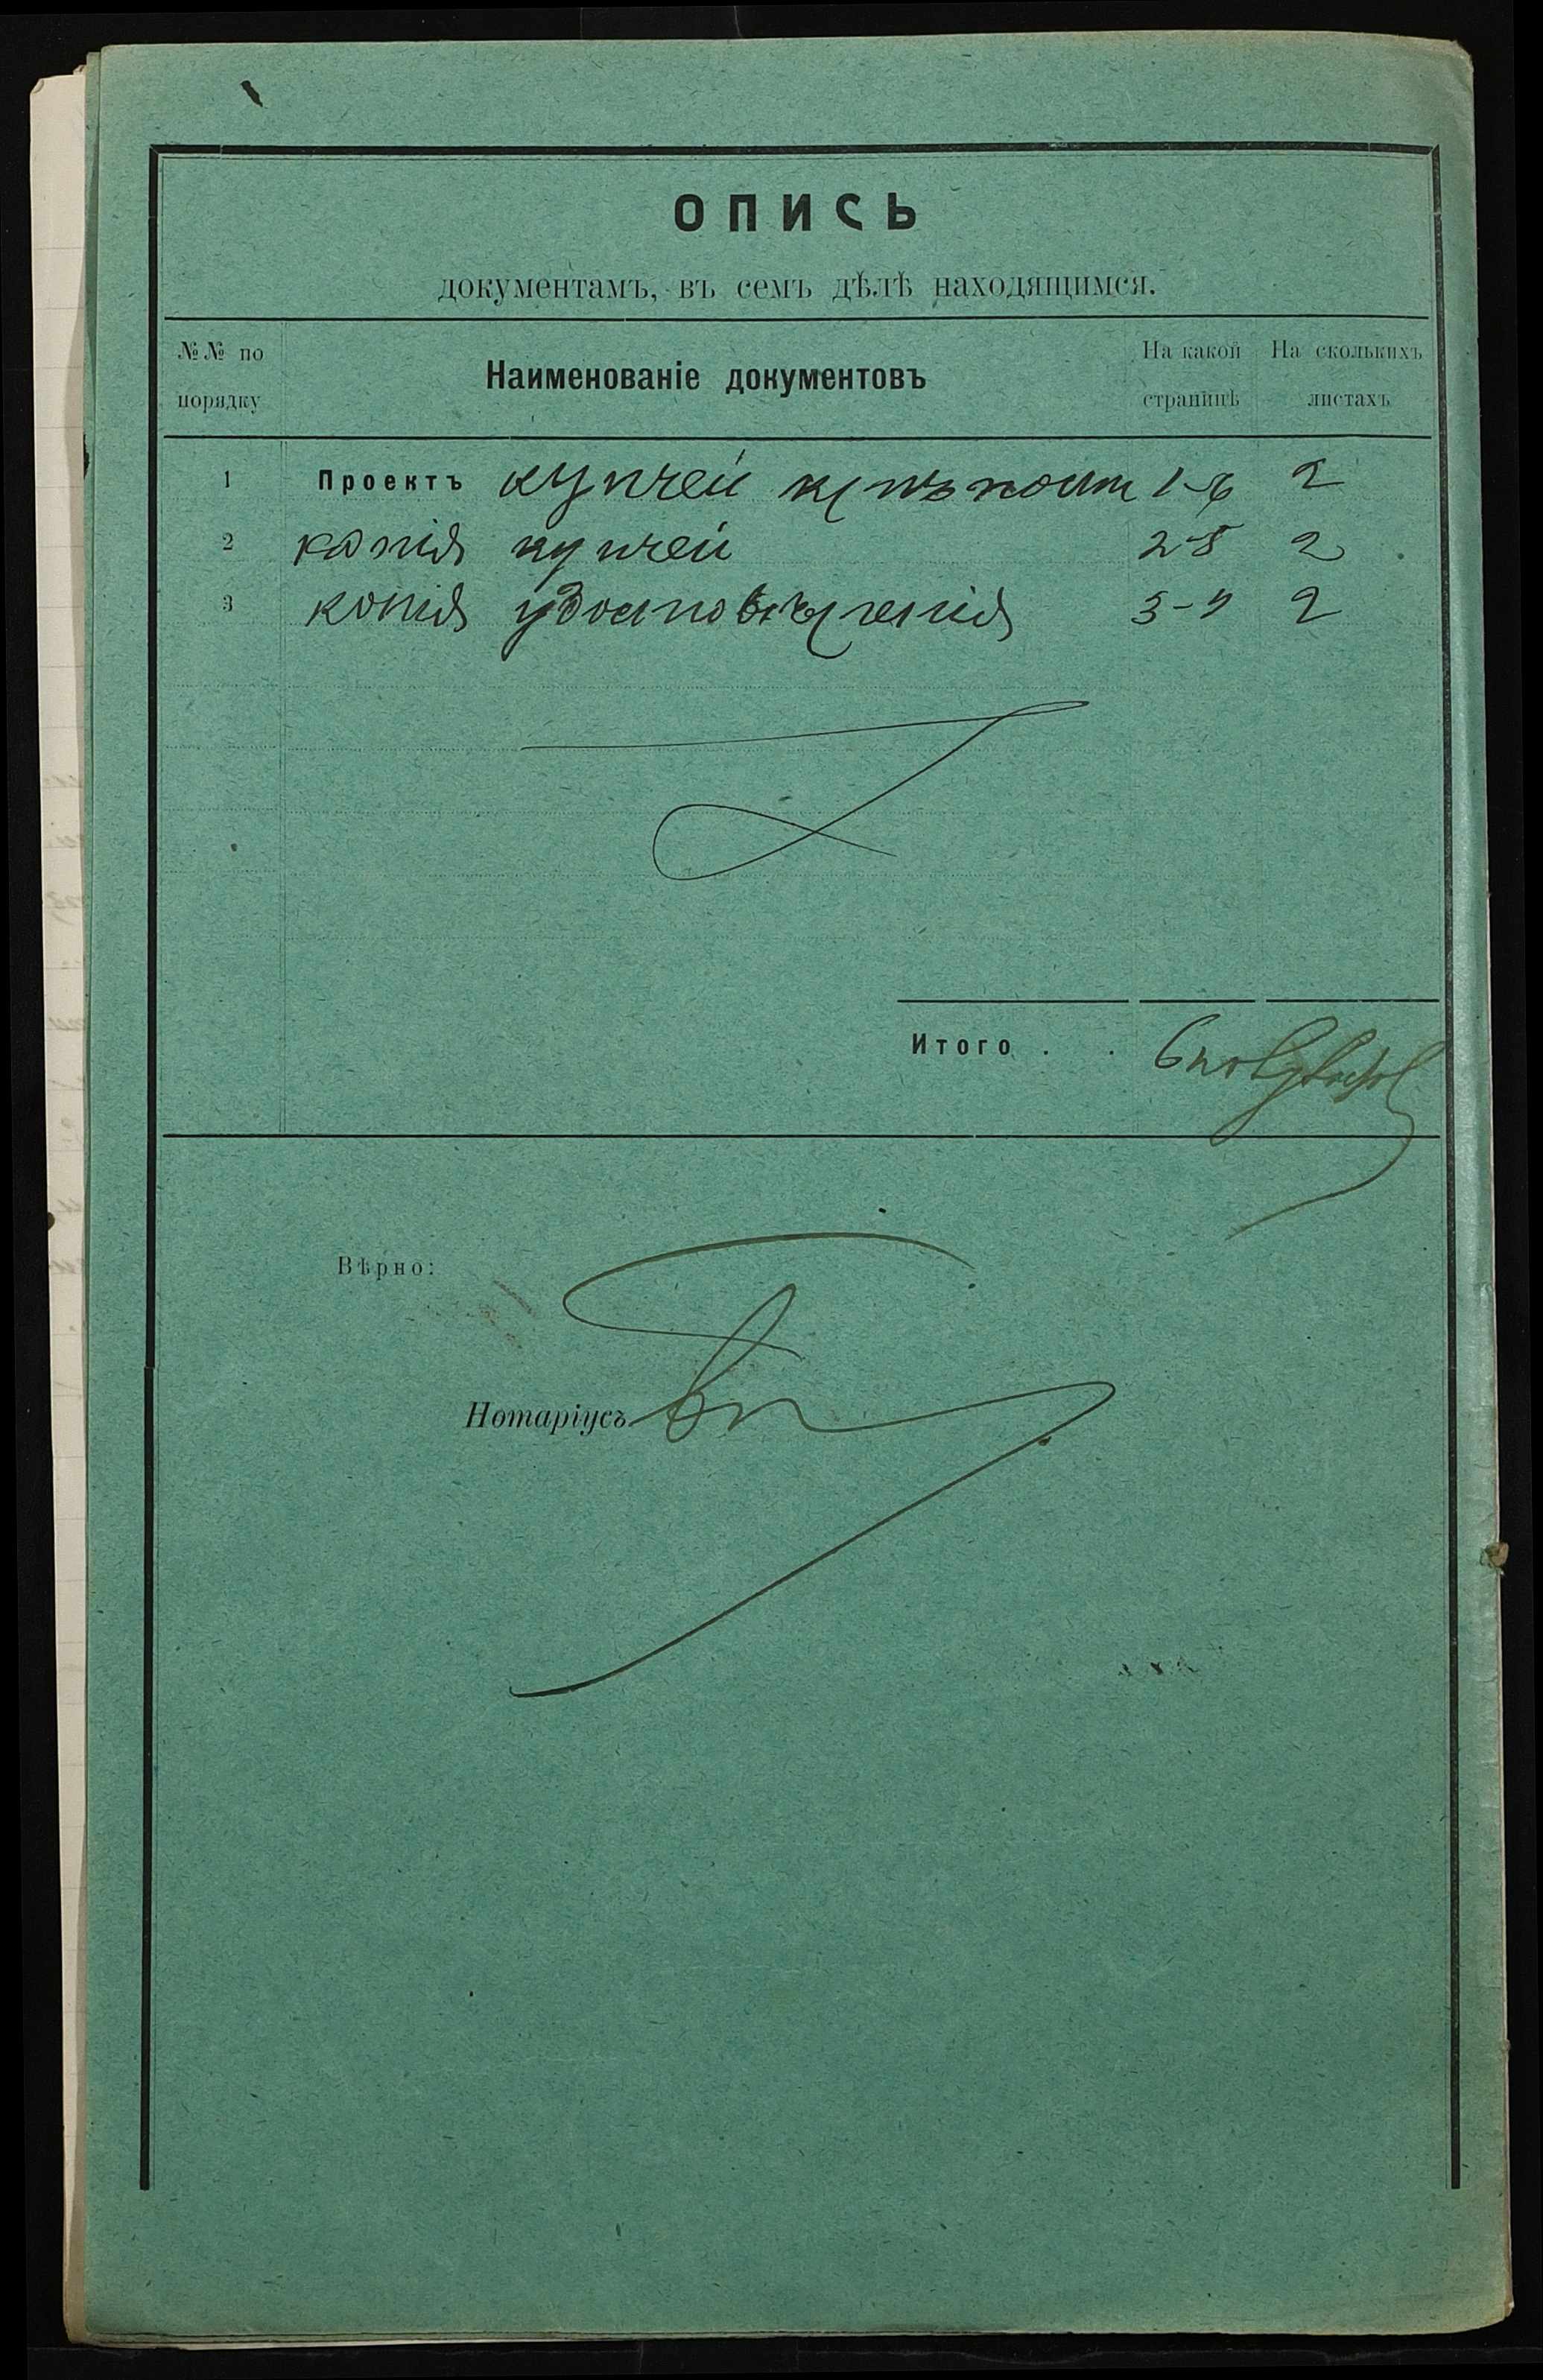 ОПИСЬ
документамъ, въ семъ дѣлѣ находящимся.
№№ по порядку Наименованіе документовъ На какой страницѣ На сколькихъ листахъ
1 Проектъ купчей крѣпости 1-6 2
2 копія купчей 2-5 2
3 копія удостовѣренія 3-4 2
Итого . . 6 полулистов
Вѣрно:
Нотаріусъ